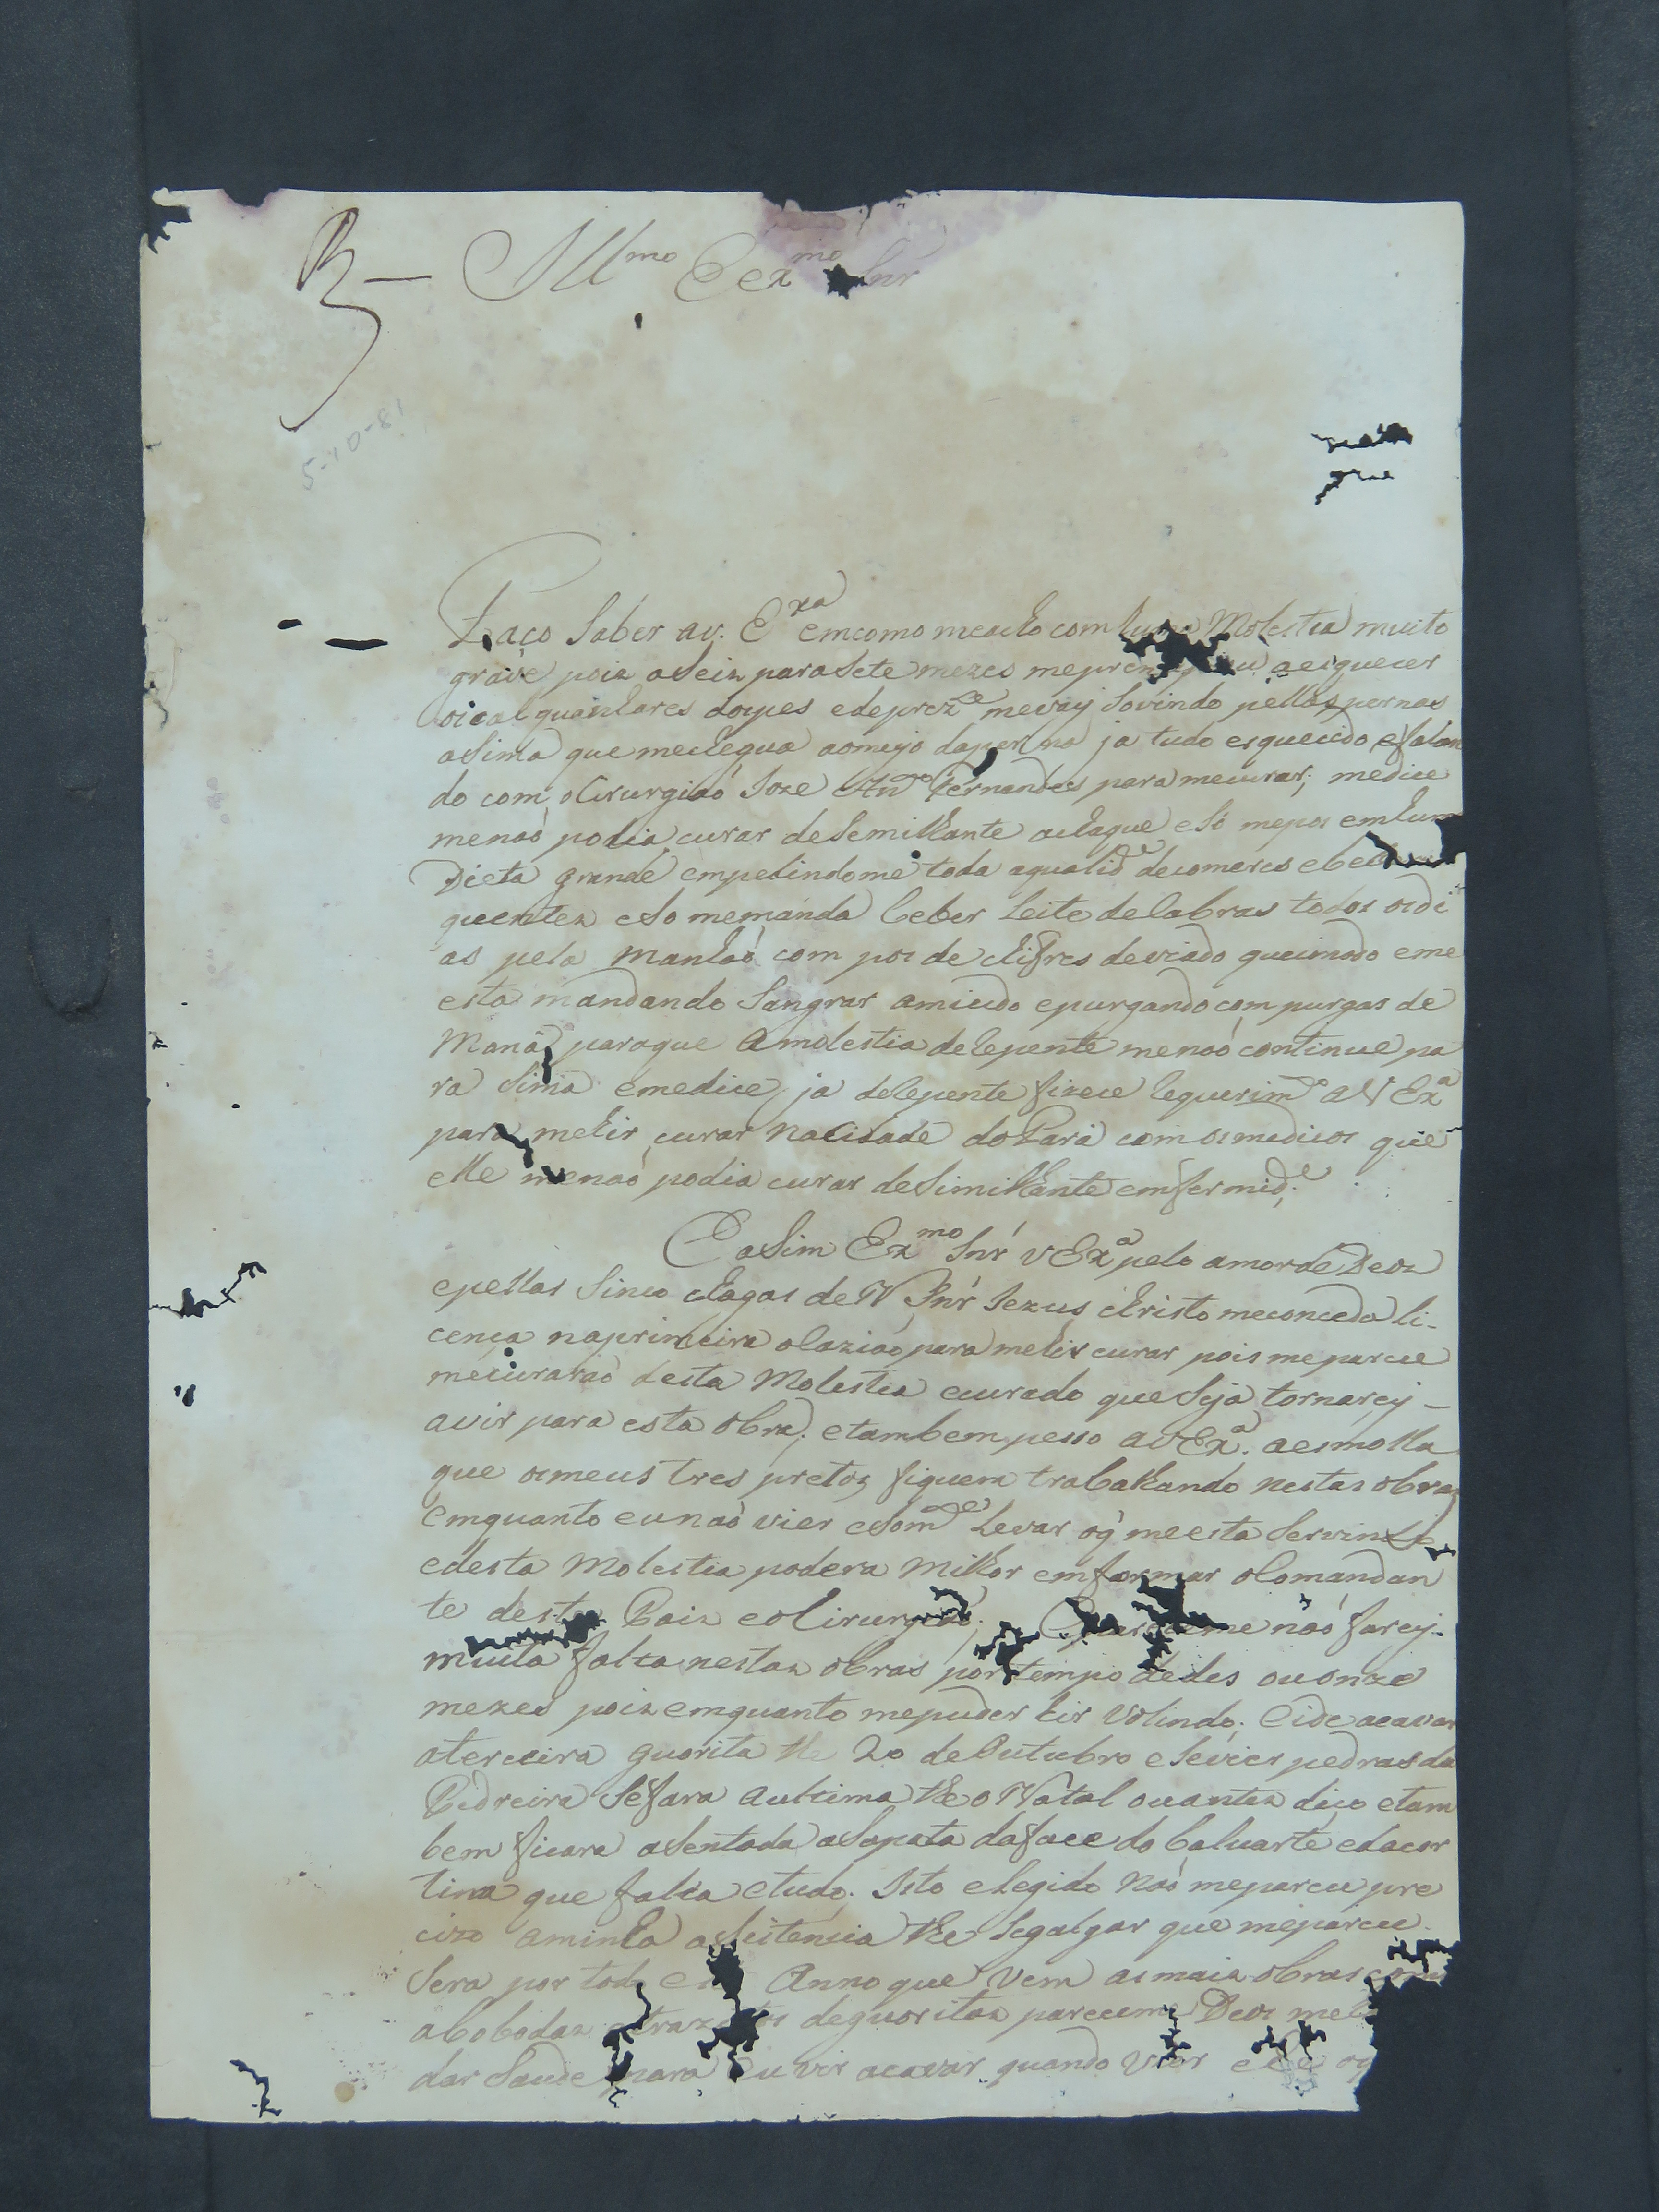 R — Ill.mo E Ex.mo Snr
5-10-81
Faço Saber av. Exa emcomo meacho com huma Molestia muito
grave pois aseis parasete mezes meprensipiou aesquecer
oscalquanhares dospes edeprez.e mevay Sovindo pellas pernas
asima que mechegua aomeyo daperna ja tudo esquecido efalan
do com oCirurgiaõ Joze An.to Fernandes para mecurar; medice
menaõ podia curar deSemilhante achaque eSó mepos emhum
Dieta grande empedindome toda aqualid.e decomeres ebeberes
quentes eSo memanda beber Leite deCabras todos osdi
as pela manhaã com pos de chifres deviado queimado eme
esta mandando Sangrar amiudo epurgando com purgas de
Maná paraque amolestia deRepente menaõ continue pa
ra Sima emedice ja deRepente fizece Requerim.to aVExa
para mehir curar naCidade doPará com osmedicos que
elle menaõ podia curar deSimilhante emfermid.e
Easim Ex.mo Snr VExa pelo amorde Deos
epellas Sinco chagas de N Snr Jezus christo meconceda li-
cença naprimeira oCaziaõ para mehir curar pois meparece
mecuraraõ desta Molestia ecurado que Seja tornarey –
avir para esta obra; etambem pesso aVExa. aesmolla
que osmeus tres pretos fiquem trabalhando nestas obras
emquanto eunaõ vier eSom.te Levar oq̃ meesta Servindo
edesta Molestia podera milhor emformar oComandan
te desta Praça eoCirurgiaõ; Epareceme naõ farey.
muita falta nestas obras por tempo dedes ouonze
mezes pois emquanto mepuder hir Volindo; Eide acavar
aterceira guorita the 20 deOutubro eSevier pedras da
Pedreira Sefara aultima the oNatal ouantes diço etam
bem ficara asentada aSapata daface do baluarte edacor
tina que falta etudo; Isto eRegido Naõ meparece pre
cizo aminha asistencia the Segalgar que meparece
Sera por todo este Anno que Vem asmais obras como
abobodas deguoritas pareceme Deos me
dar Saude para Eu vir acavar quando Vier